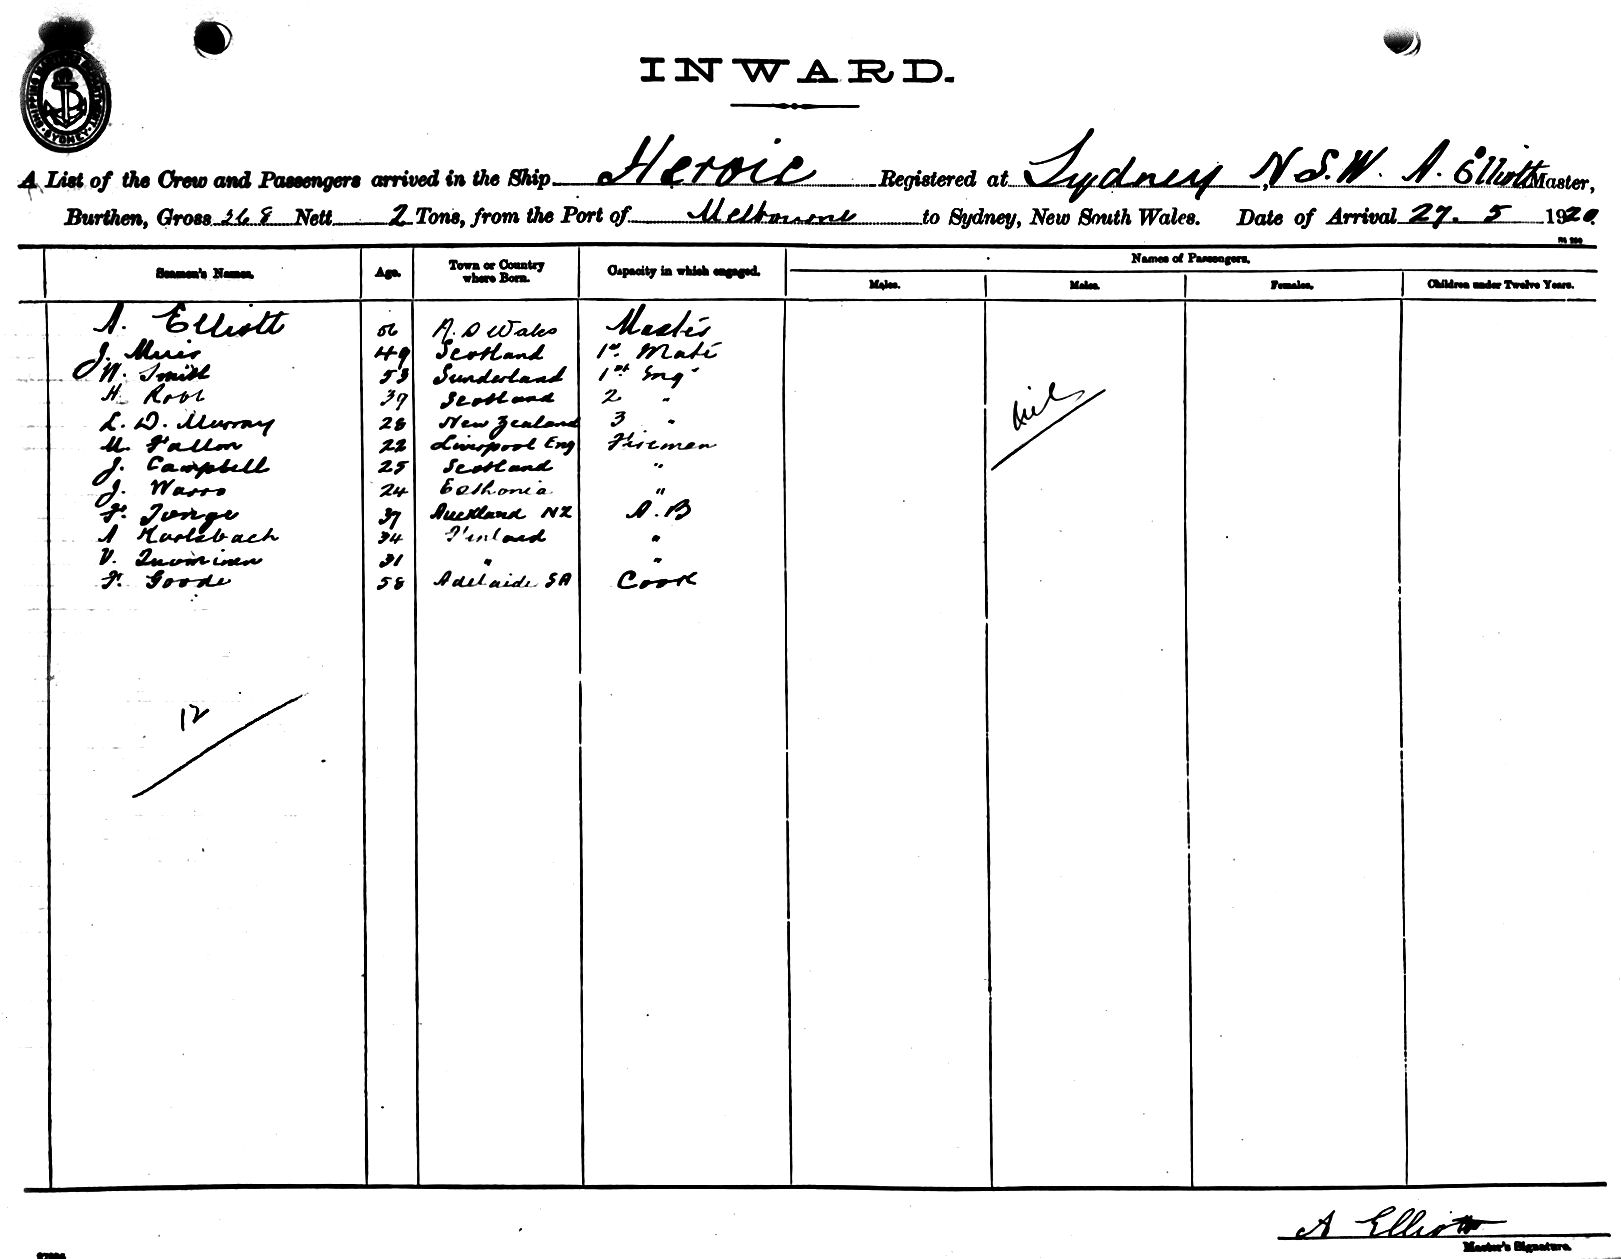 SHIPPING MASTER'S OFFICE SYDNEY
INWARD.
A List of the Crew and Passengers arrived in the Ship Heroic Registered at Sydney N.S.W. A. Elliott Master,
Burthen, Gross 268 Nett 2 Tons, from the Port of Melbourne to Sydney, New South Wales. Date of Arrival 27. 5 1920.
Seamen's Names. Age. Town or Country where Born. Capacity in which engaged. Names of Passengers.
Males. Males. Females. Children under Twelve Years.
A. Elliott 56 N. S Wales Master
J. Muir 49 Scotland 1st Mate
W. Smith 53 Sunderland 1st Eng
H. Robb 39 Scotland 2 "
L. D. Murray 28 New Zealand 3 "
M. Fallon 22 Liverpool Eng Firemen
J. Campbell 25 Scotland "
J. 24 Esthonia "
F. 37 Auckland NZ A.B
A 34 Finland "
V. Tuominen 31 " "
F. Goode 58 Adelaide SA Cook
nil
12
A Elliott
Master's Signature.